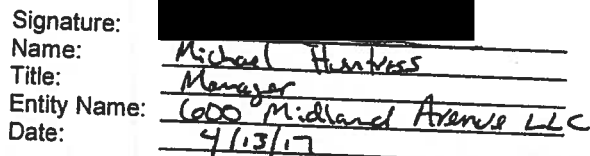 Signature:
Name: Michael Huntress
Title: Manager
Entity Name: 600 Midland Avenue LLC
Date: 4/13/17